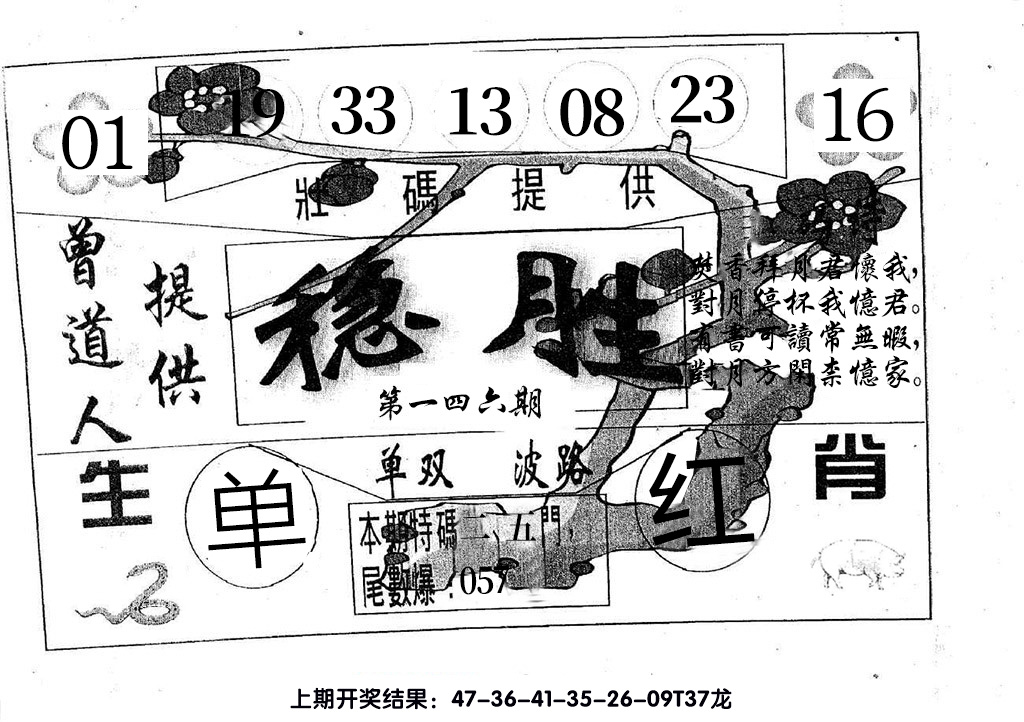 01 19 33 13 08 23 16
壯碼提供
曾道人
提供
稳胜
第一四六期
香拜月君懷我，
對月停杯我憶君。
有書可讀常無暇，
對月方閑柰憶家。
单双 波路
生
单
红
肖
本期特碼二、五門，
尾數爆：057
上期开奖结果：47-36-41-35-26-09T37龙